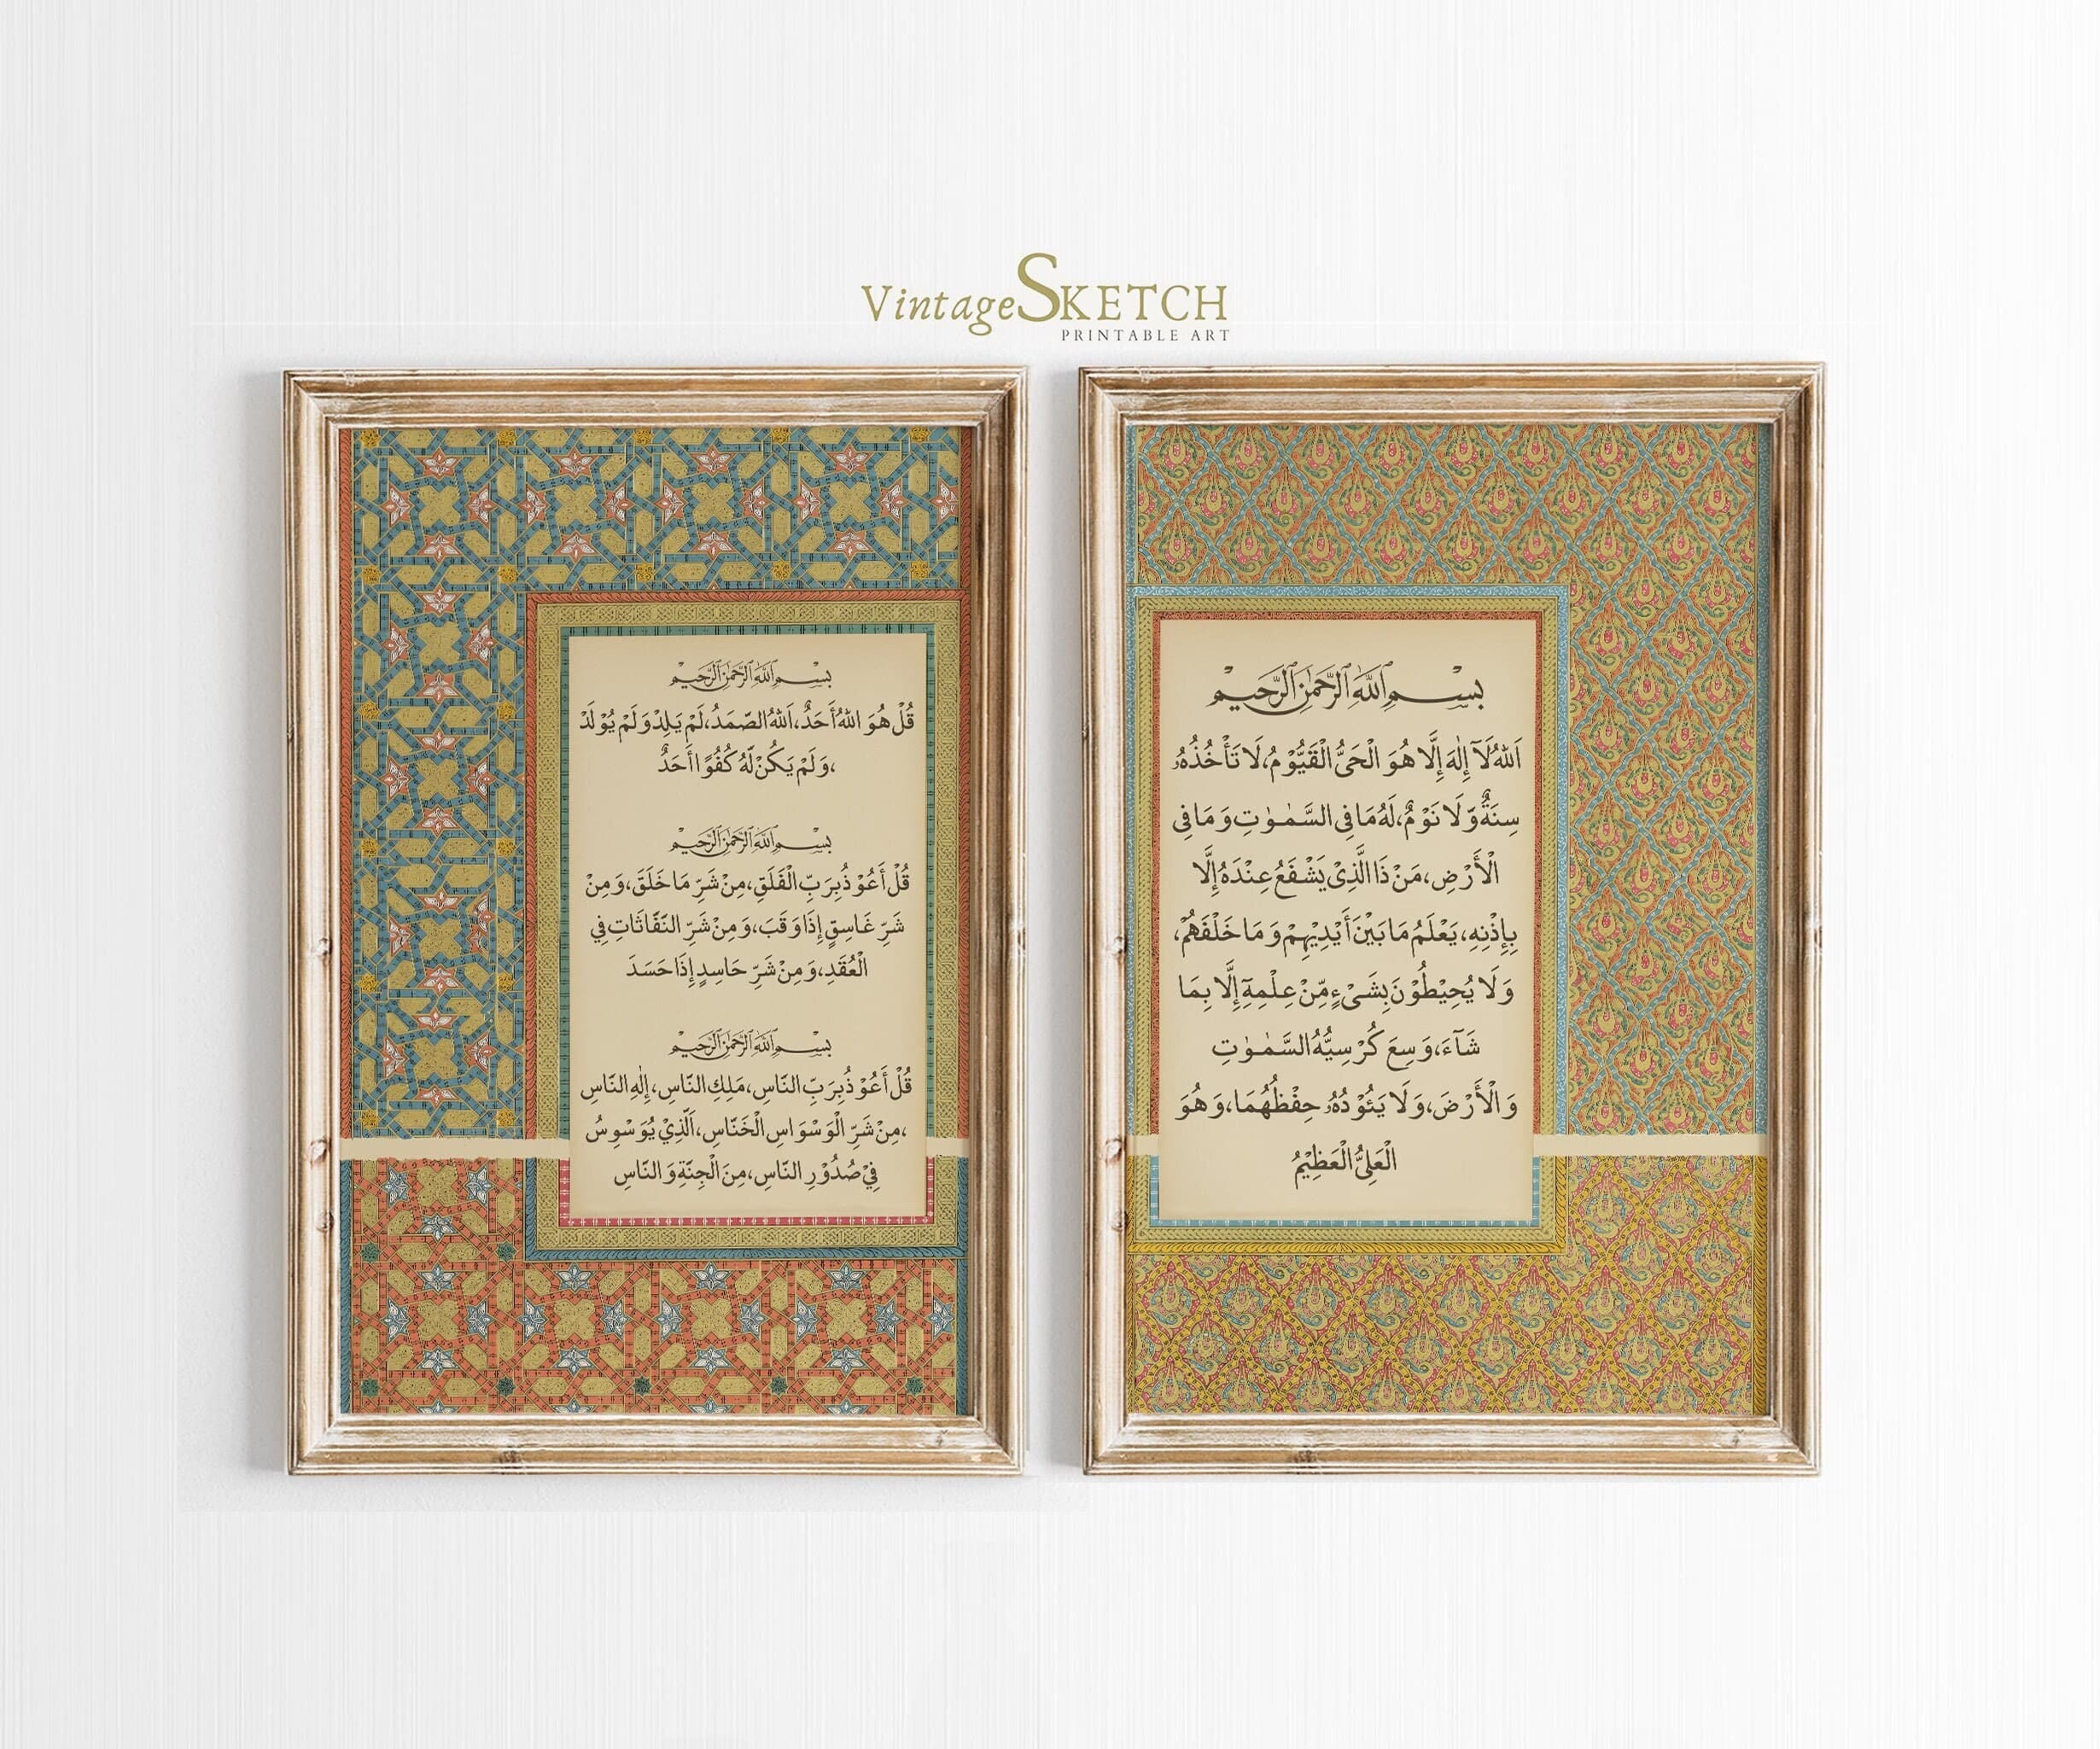 VintageSKETCH
PRINTABLE ART
بِسْمِ اللَّهِ الرَّحْمَٰنِ الرَّحِيمِ
قُلْ هُوَ اللّٰهُ أَحَدٌ، اَللّٰهُ الصَّمَدُ، لَمْ يَلِدْ وَلَمْ يُوْلَدْ
،وَلَمْ يَكُنْ لَّهُ كُفُوًا اَحَدٌ
بِسْمِ اللَّهِ الرَّحْمَٰنِ الرَّحِيمِ
قُلْ أَعُوْذُ بِرَبِّ الْفَلَقِ، مِنْ شَرِّ مَا خَلَقَ، وَمِنْ
شَرِّ غَاسِقٍ إِذَا وَقَبَ، وَمِنْ شَرِّ النَّفَّاثَاتِ فِي
الْعُقَدِ، وَمِنْ شَرِّ حَاسِدٍ إِذَا حَسَدَ
بِسْمِ اللَّهِ الرَّحْمَٰنِ الرَّحِيمِ
قُلْ أَعُوْذُ بِرَبِّ النَّاسِ، مَلِكِ النَّاسِ، إِلٰهِ النَّاسِ
،مِنْ شَرِّ الْوَسْوَاسِ الْخَنَّاسِ، اَلَّذِيْ يُوَسْوِسُ
فِيْ صُدُوْرِ النَّاسِ، مِنَ الْجِنَّةِ وَالنَّاسِ
بِسْمِ اللَّهِ الرَّحْمَٰنِ الرَّحِيمِ
اَللّٰهُ لَآ إِلٰهَ إِلَّا هُوَ الْحَىُّ الْقَيُّوْمُ، لَا تَأْخُذُهُ
سِنَةٌ وَّلَا نَوْمٌ، لَهُ مَا فِى السَّمٰوٰتِ وَمَا فِى
الْأَرْضِ، مَنْ ذَا الَّذِىْ يَشْفَعُ عِنْدَهُ إِلَّا
بِإِذْنِهِ، يَعْلَمُ مَا بَيْنَ أَيْدِيْهِمْ وَمَا خَلْفَهُمْ،
وَلَا يُحِيْطُوْنَ بِشَىْءٍ مِّنْ عِلْمِهِ إِلَّا بِمَا
شَآءَ، وَسِعَ كُرْسِيُّهُ السَّمٰوٰتِ
وَالْأَرْضَ، وَلَا يَئُوْدُهُ حِفْظُهُمَا، وَهُوَ
الْعَلِىُّ الْعَظِيْمُ